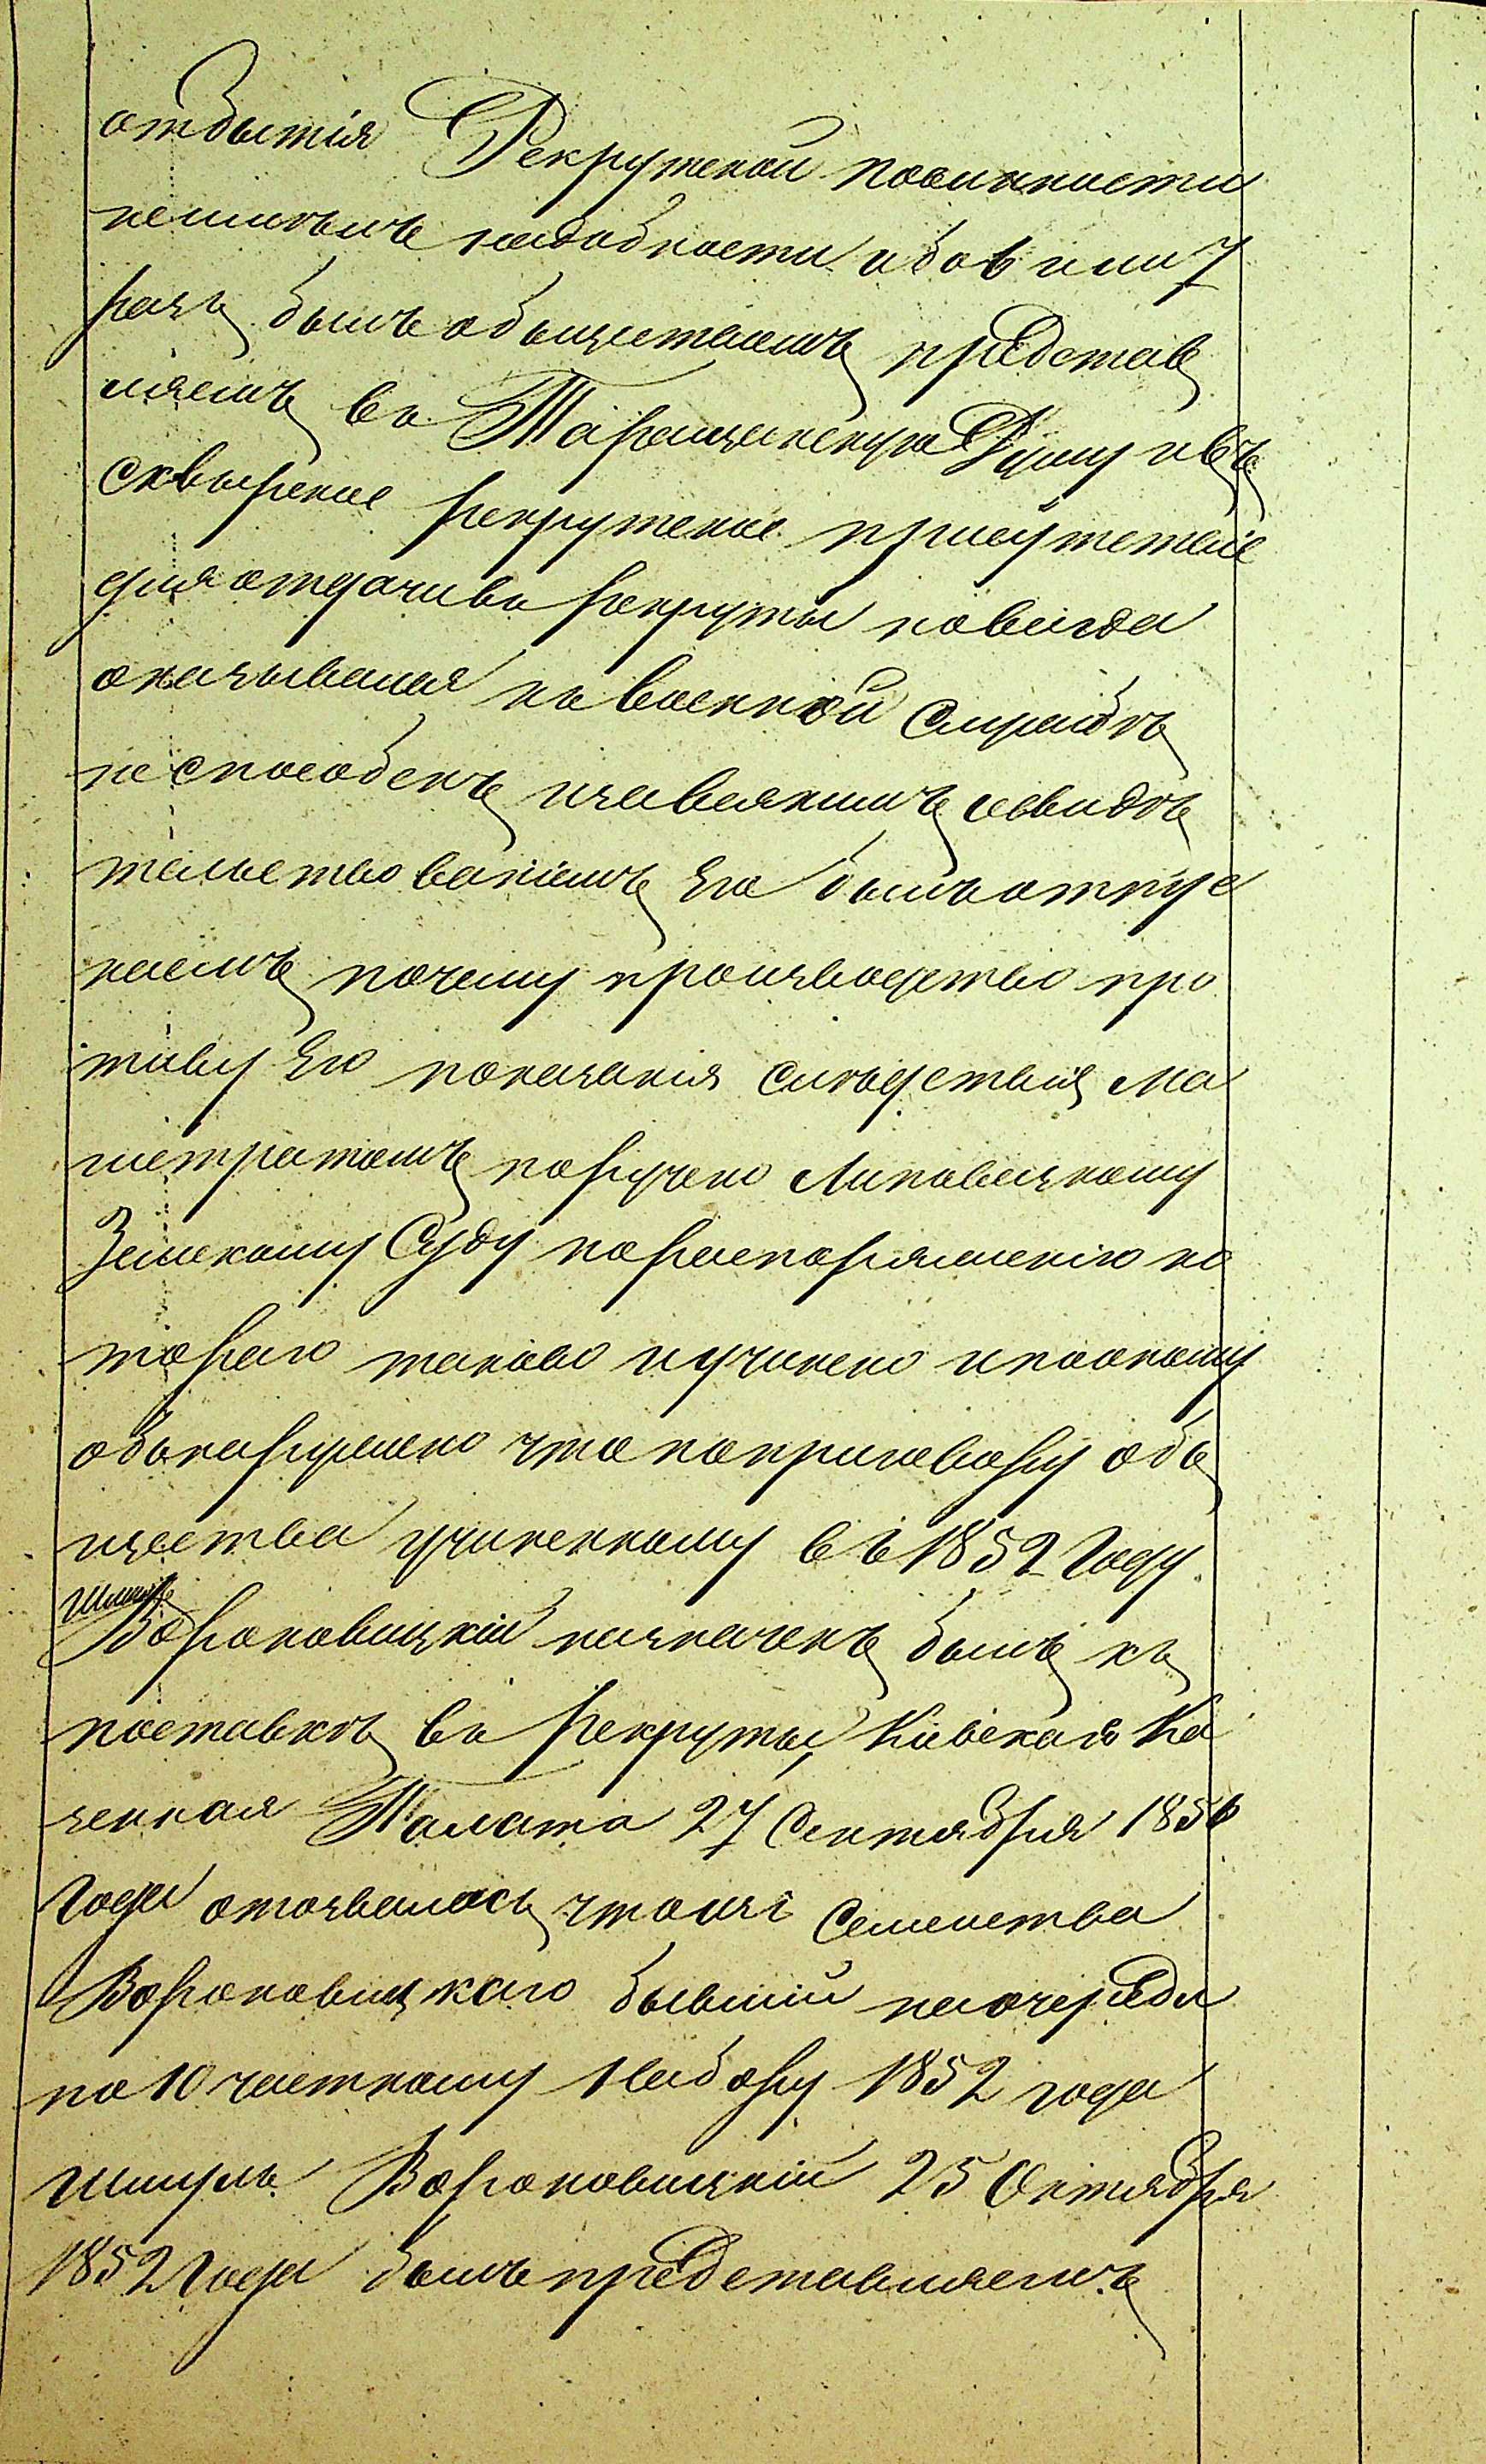 отбытія Рекрутской повинности
неимѣлъ надобности ибо 6 или 7
разъ былъ обществомъ представ
ляемъ въ Таращанскую Думу и въ
сквырское рекрутское присутствіе
для отдачи въ рекруты но всегда
оказывался къ военной службѣ
неспособенъ и за всякимъ освидѣ
тельствованіемъ его былъ отпус
каемъ почему производство про
тиву его показанія слѣдствія Ма
гистратомъ поручено Липовецкому
Земскому Суду по распоряженію ко
тораго таково и учинено и по оному
обнаружено что по приговору обь
щества учиненному въ 1852 году
Шмуль
Вороновицкій назначенъ былъ къ
поставкѣ въ рекруты, Кіевская Ка
зенная Палата 27 Сентября 1856
года отозвалась, что изъ Семейства
Вороновицкаго бывшій на очереди
по 10 частному Набору 1852 года
Шмуль Вороновицкій 25 Октября
1852 года былъ представляемъ